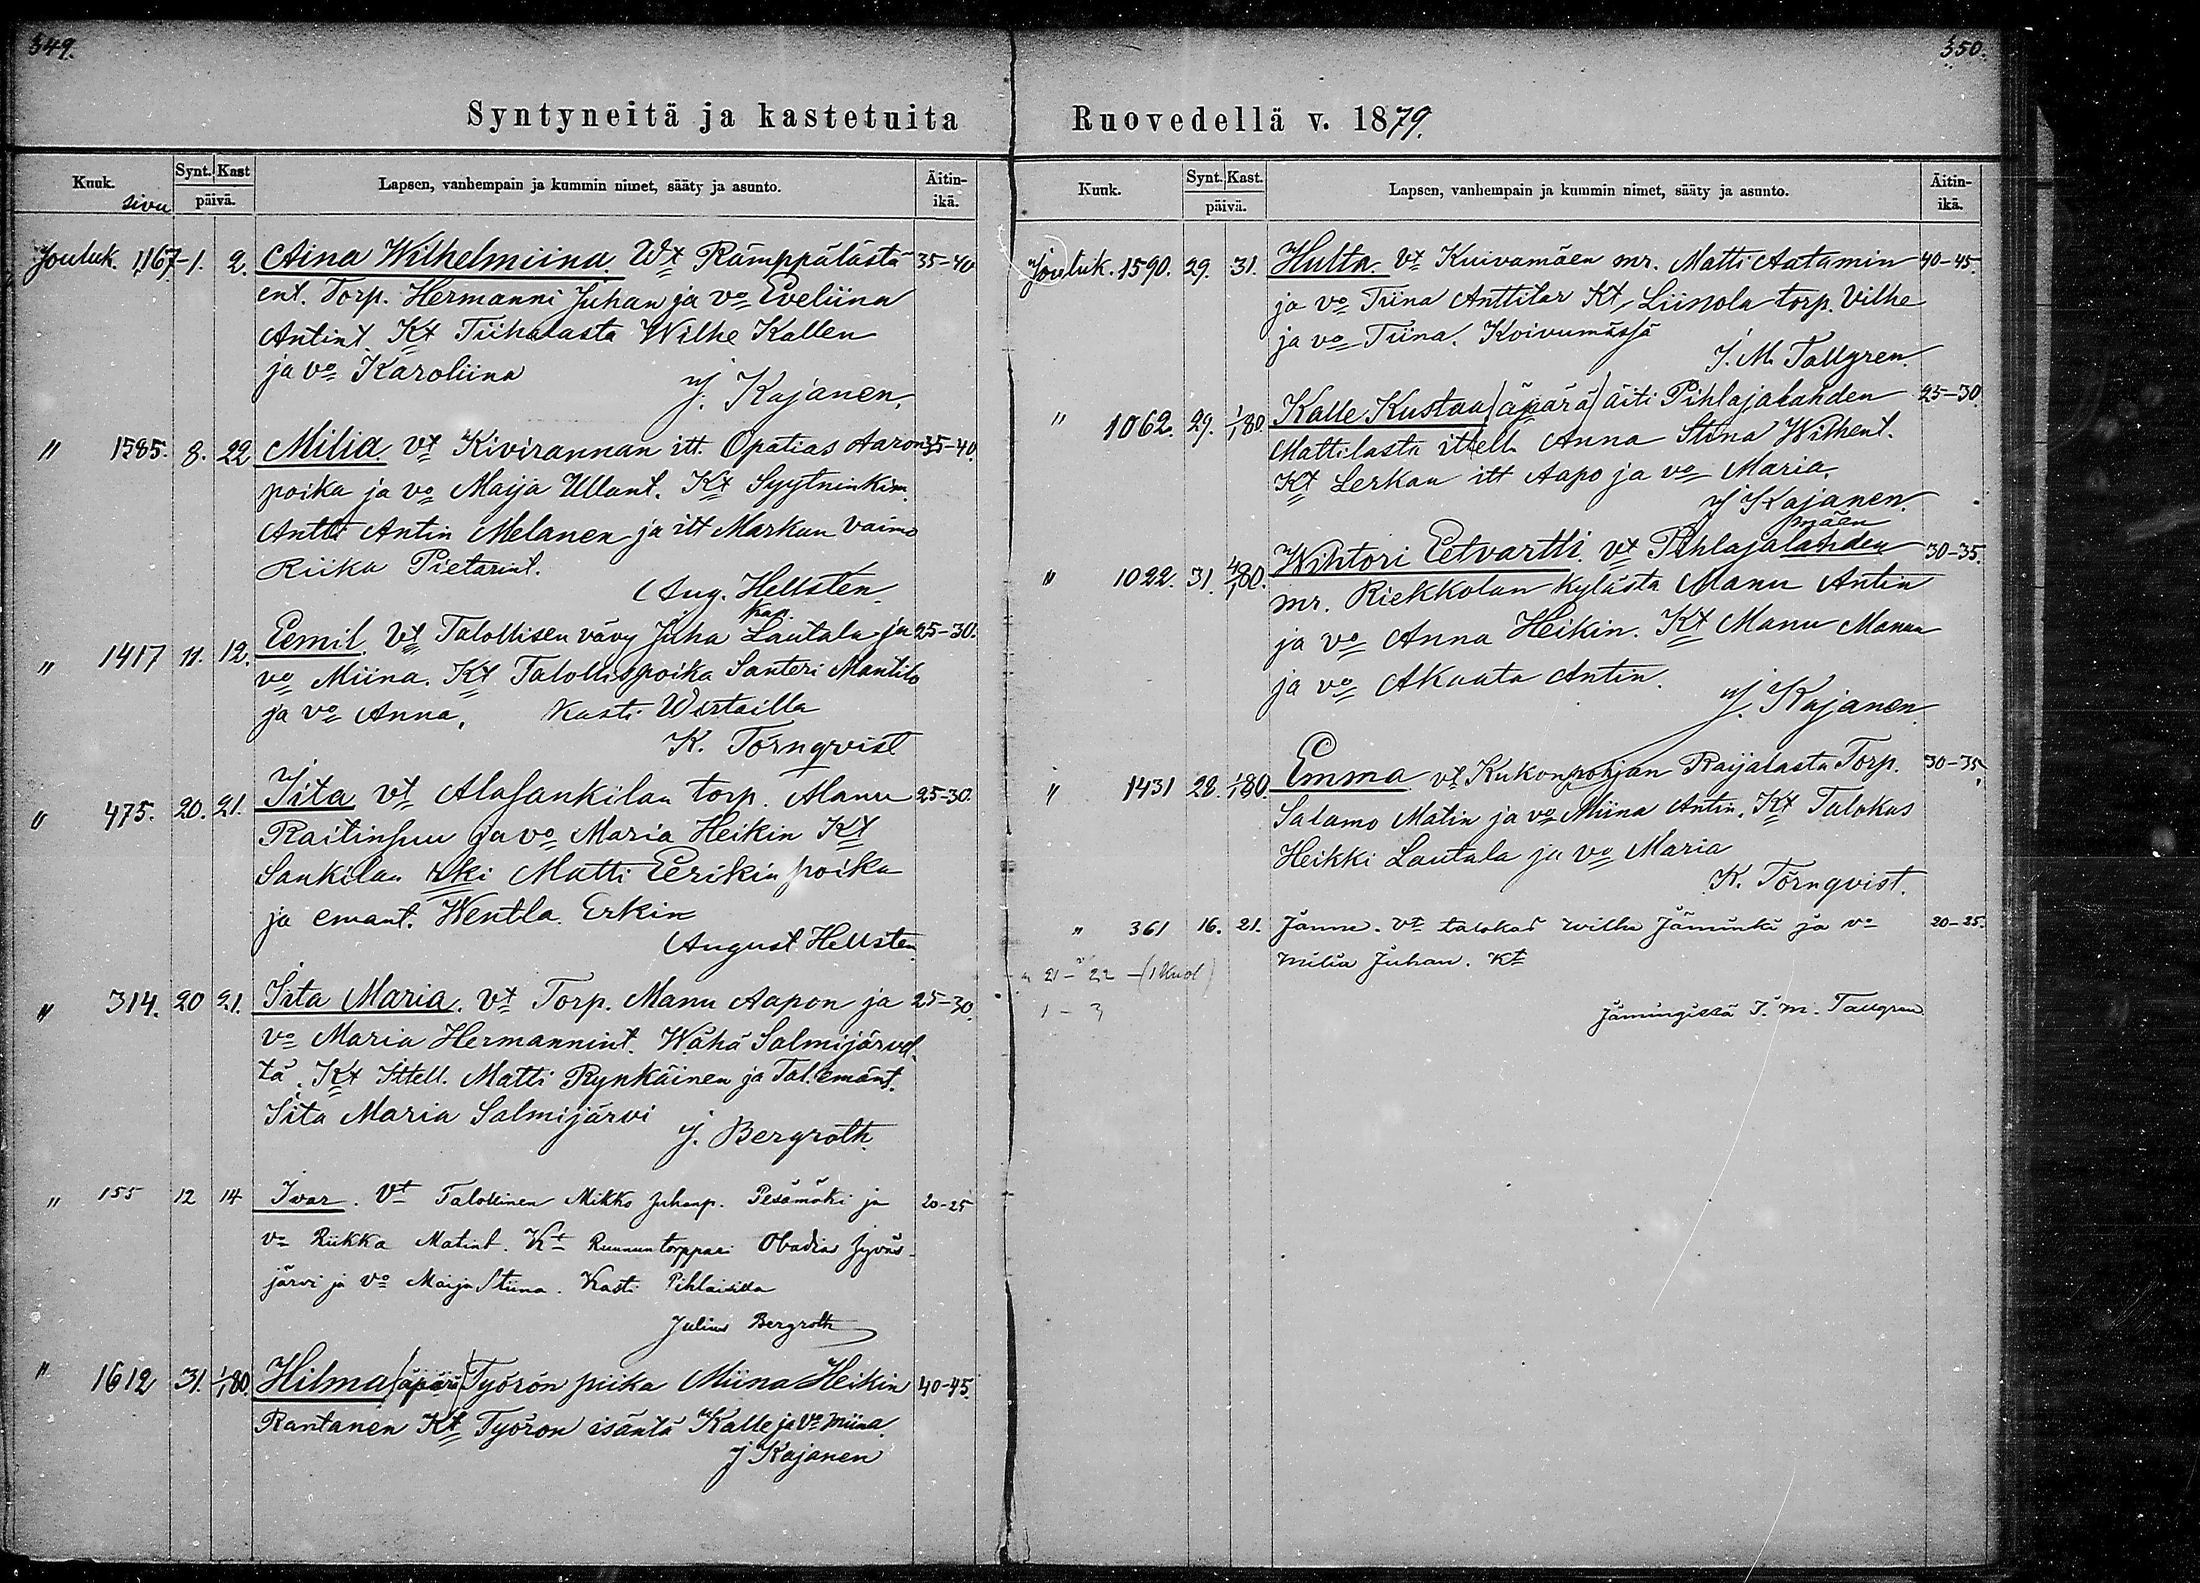 349.
Syntyneitä ja kastetuita
Kuuk. sivu Synt. Kast päivä. Lapsen, vanhempain ja kummin nimet, sääty ja asunto. Äitin-ikä.
Jouluk. 1167 1. 2. Aina Wilhelmiina. Vt Rämppälästä 35-40
ent. Torp. Hermanni Juhan ja vo Eveliina
Antint Kt Tiihalasta Wilhe Kallen
ja vo Karoliina
J. Kajanen,
" 1585. 8. 22 Milia. vt Kivirannan itt. Opatias Aaron 35-40.
poika ja vo Maija Ullant. Kt Syytninkim.
Antti Antin Melanen ja itt Markun vaimo
Riika Pietarint.
Aug. Hellsten.
kap.
" 1417 11. 12. Eemil. Vt Talollisen vävy Juha Lautala ja 25-30.
vo Miina. Kt Talollispoika Santeri Mantila
ja vo Anna. Kasti Wirtailla
K. Törnqvist
" 475. 20. 21. Iita vt Alasankilan torp. Manu 25-30.
Raitinsuu ja vo Maria Heikin Kt
Sankilan Matti Eerikin poika
ja emänt. Wentla Erkin
August Hellsten
" 314. 20 21. Iita Maria. vt Torp. Manu Aapon ja 25-30.
vo Maria Hermannint. Wähä Salmijärvel-
tä. Kt Ittell. Matti Rynkäinen ja Tal. emänt.
Iita Maria Salmijärvi
J. Bergroth.
" 155 12 14 Ivar. Vt Talollinen Mikko Juhanp. Pesämäki ja 20-25
vo Riikka Matint. Kt Ruunun torppari Obadias Jyväs-
järvi ja vo Maija Stiina. Kasti Pihlaisilla
Julius Bergroth
" 1612 31. 1/1 80. Hilma (äpärä) Työrön piika Miina Heikin 40-45.
Rantanen Kt Työrön isäntä Kalle ja Vo Miina.
J Kajanen
350.
Ruovedellä v. 1879.
Kuuk. Synt. Kast. päivä. Lapsen, vanhempain ja kummin nimet, sääty ja asunto. Äitin-ikä.
Jouluk. 1590. 29. 31. Hulta. vt Kuivamäen mr. Matti Aatamin 40-45.
ja vo Tiina Anttilar Kt, Liinola torp. Vilhe
ja vo Tiina. Koivumässä
J. M. Tallgren.
" 1062. 29. 1/1 80. Kalle Kustaa (äpärä) äiti Pihlajalahden 25-30.
Mattilasta ittell. Anna Stina Wilhent.
Kt Lerkan itt Aapo ja vo Maria.
J Kajanen.
" 1022. 31. 4/1 80. Wihtori Eetvartti. vt Pihlajalahden 30-35.
mr. Riekkolan kylästä Manu Antin
ja vo Anna Heikin. Kt Manu Manun
ja vo Akaata Antin.
J. Kajanen
" 1431 28. 1/1 80. Emma vt Kukonpohjan Raijalasta Torp. 30-35.
Salamo Matin ja vo Miina Antin. Kt Talokas
Heikki Lautala ja vo Maria
K. Törnqvist.
" 361 16. 21. Janne. vt talokas Wilhe Jäminki ja vo 20-25.
Milia Juhan. Kt
21 - 22 - (1 kuol)
1 - 3
Jämingissä J. M. Tallgren